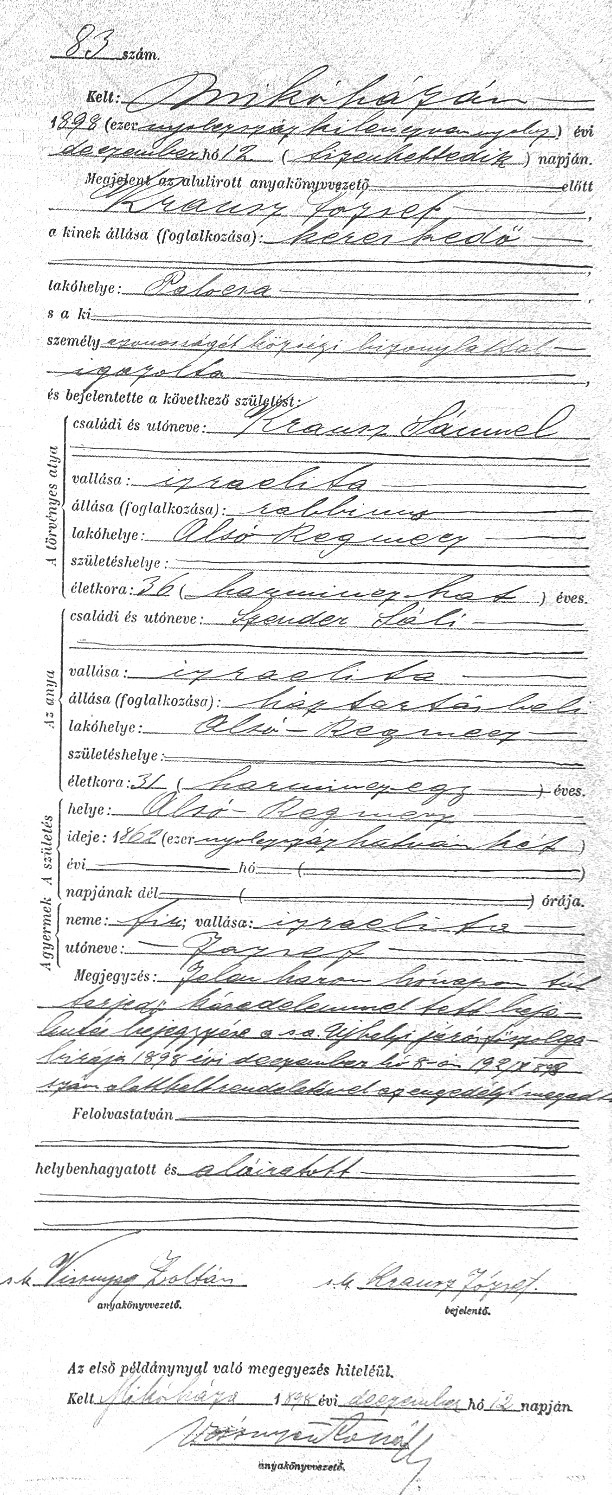 83 szám.
Kelt: Mikóházán
1898 (ezer nyolczszáz kilenczvennyolcz) évi
deczember hó 12 ( tizenkettedik ) napján.
Megjelent az alulirott anyakönyvvezető előtt
Krausz József,
a kinek állása (foglalkozása): kereskedő
lakóhelye: Palocsa
s a ki
személyazonosságát községi bizonylattal
igazolta
és bejelentette a következő születést:
A törvényes atya
családi és utóneve: Krausz Sámuel
vallása: izraelita
állása (foglalkozása): rabbinus
lakóhelye: Alsó Regmecz
születéshelye:
életkora: 36 ( harminczhat ) éves.
Az anya
családi és utóneve: Szender Sáli
vallása: izraelita
állása (foglalkozása): háztartásbeli
lakóhelye: Alsó-Regmecz
születéshelye:
életkora: 31 ( harminczegy ) éves.
A születés
helye: Alsó-Regmecz
ideje: 1862 (ezer nyolczszáz hatvan két )
évi hó ( )
napjának dél ( ) órája.
A gyermek
neme: fiu; vallása: izraelita
utóneve: József
Megjegyzés: Jelen három hónapon túl
terjedő késedelemmel tett beje-
lentés bejegyzésére a s.a. Ujhelyi járás főszolga-
birája 1898 évi deczember hó 8-án
szám alatt kelt rendeletével az engedélyt
Felolvastatván
helybenhagyatott és aláiratott
s.k. Zoltán
anyakönyvvezető.
s.k. Krausz József.
bejelentő.
Az első példánynyal való megegyezés hiteléül.
Kelt Mikóháza 1898 évi deczember hó 12 napján
anyakönyvvezető.